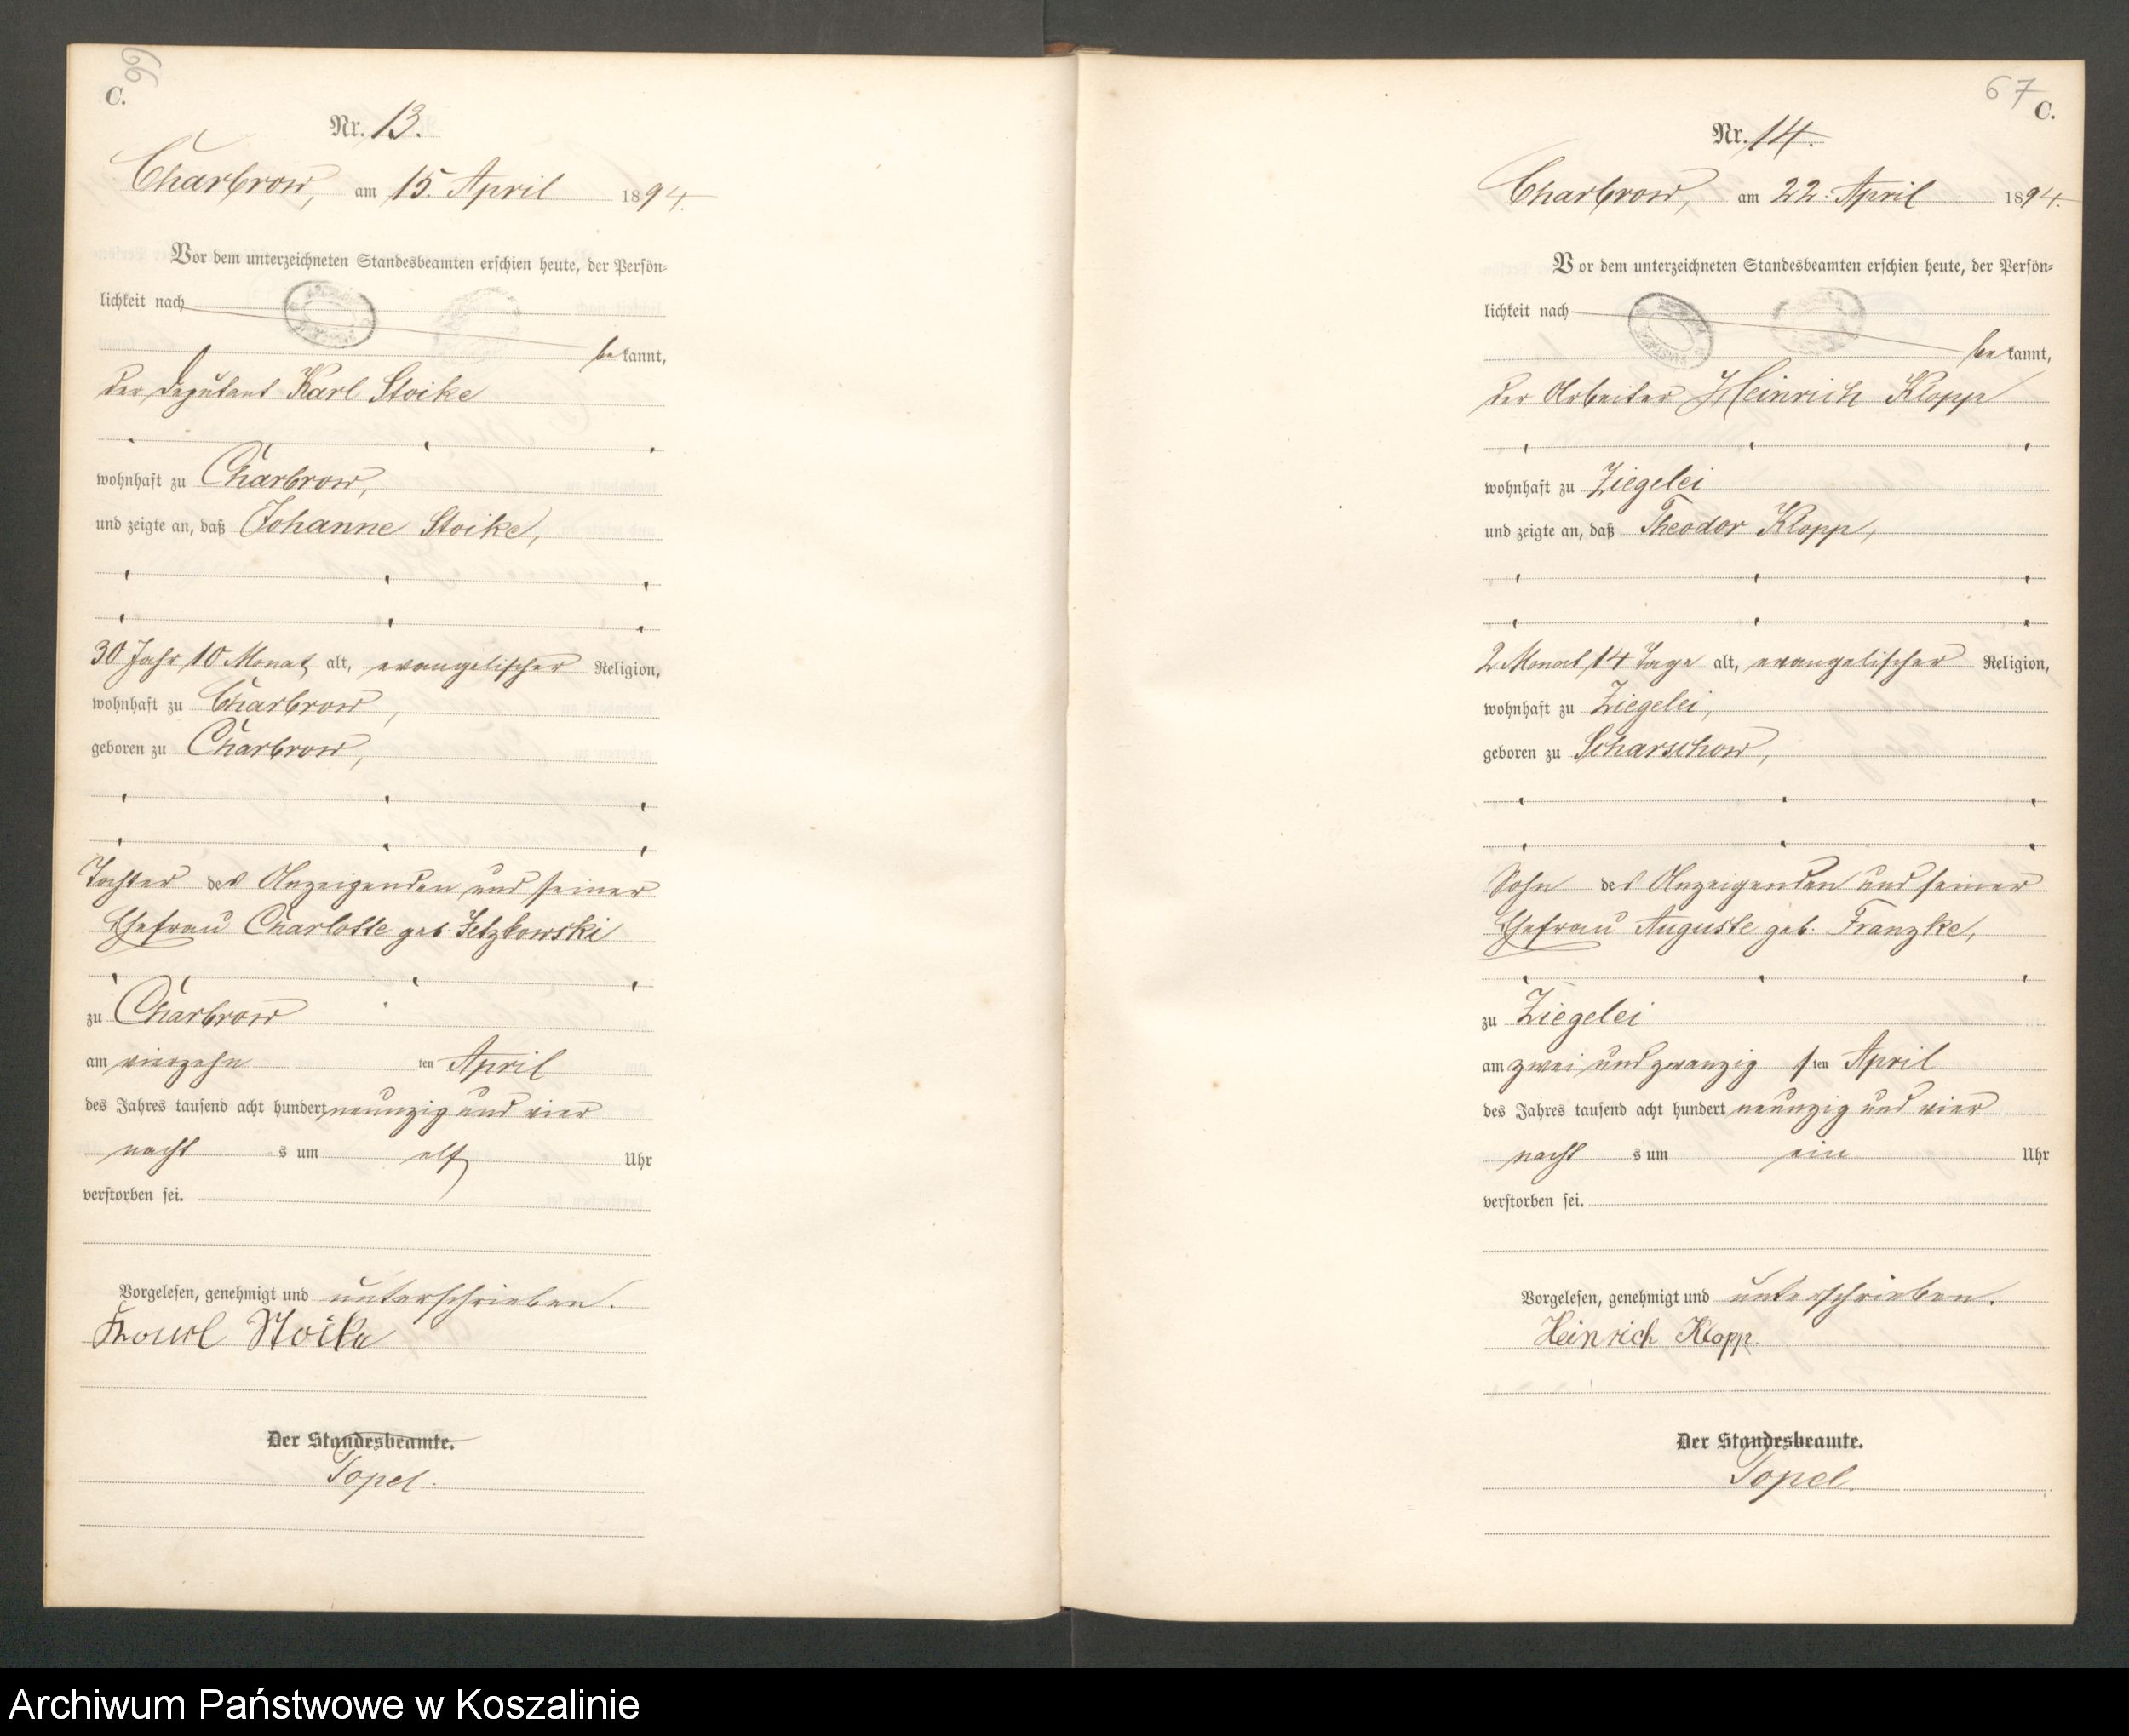 66
C.
Nr. 13.
Charbrow, am 15. April 1894.
Vor dem unterzeichneten Standesbeamten erschien heute, der Persön-
lichkeit nach
be kannt,
der Deputant Karl Stoike
wohnhaft zu Charbrow,
und zeigte an, daß Johanne Stoike,
30 Jahr 10 Monat alt, evangelischer Religion,
wohnhaft zu Charbrow,
geboren zu Charbrow,
Tochter des Anzeigenden und seiner
Ehefrau Charlotte geb. Jetzkowski
zu Charbrow
am vierzehn ten April
des Jahres tausend acht hundert neunzig und vier
nacht s um elf Uhr
verstorben sei.
Vorgelesen, genehmigt und unterschrieben.
Karl Stoike
Der Standesbeamte.
Topel.
67
C.
Nr. 14.
Charbrow, am 22. April 1894.
Vor dem unterzeichneten Standesbeamten erschien heute, der Persön-
lichkeit nach
be kannt,
der Arbeiter Heinrich Klopp
wohnhaft zu Ziegelei
und zeigte an, daß Theodor Klopp,
2 Monat 14 Tage alt, evangelischer Religion,
wohnhaft zu Ziegelei,
geboren zu Scharschow,
Sohn des Anzeigenden und seiner
Ehefrau Auguste geb. Franzke,
zu Ziegelei
am zwei und zwanzig sten April
des Jahres tausend acht hundert neunzig und vier
nacht s um ein Uhr
verstorben sei.
Vorgelesen, genehmigt und unterschrieben.
Heinrich Klopp.
Der Standesbeamte.
Topel.
Archiwum Państwowe w Koszalinie